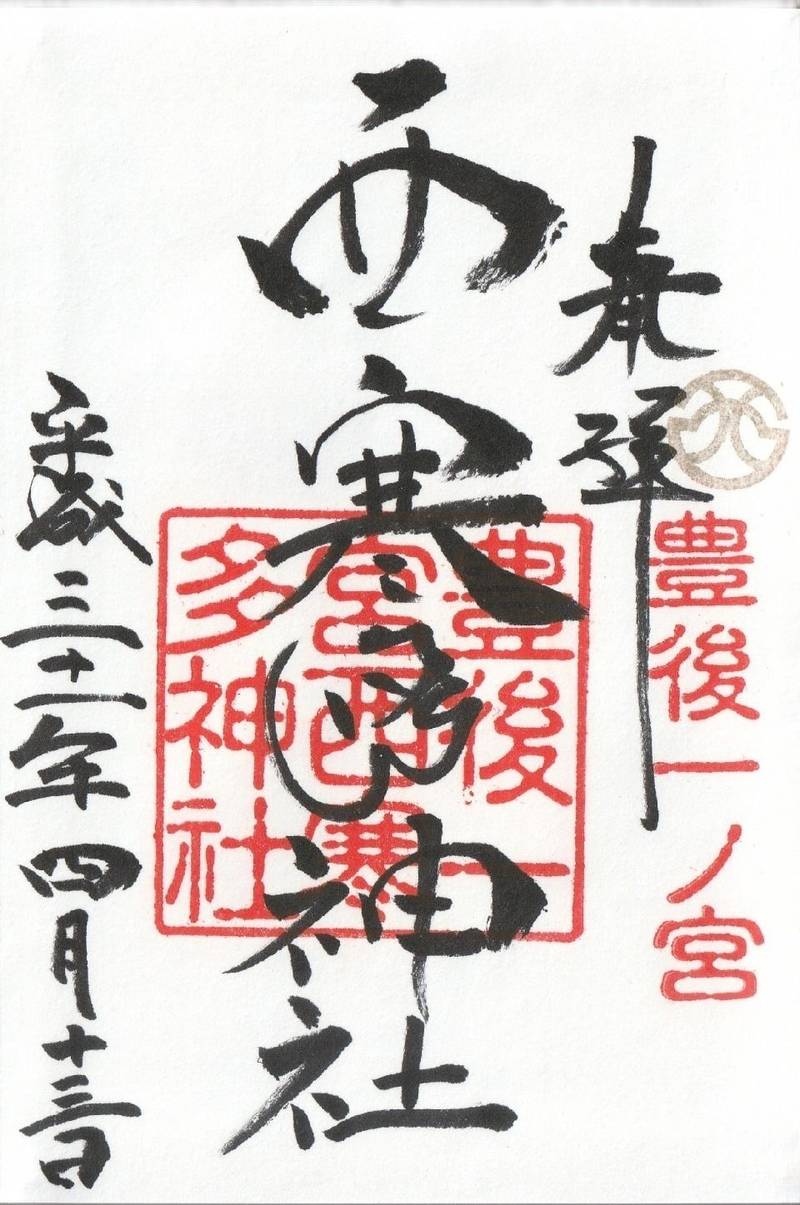 豊後一ノ宮
奉拝
西寒多神社
豊後一
宮西寒
多神社
平成三十一年四月十三日